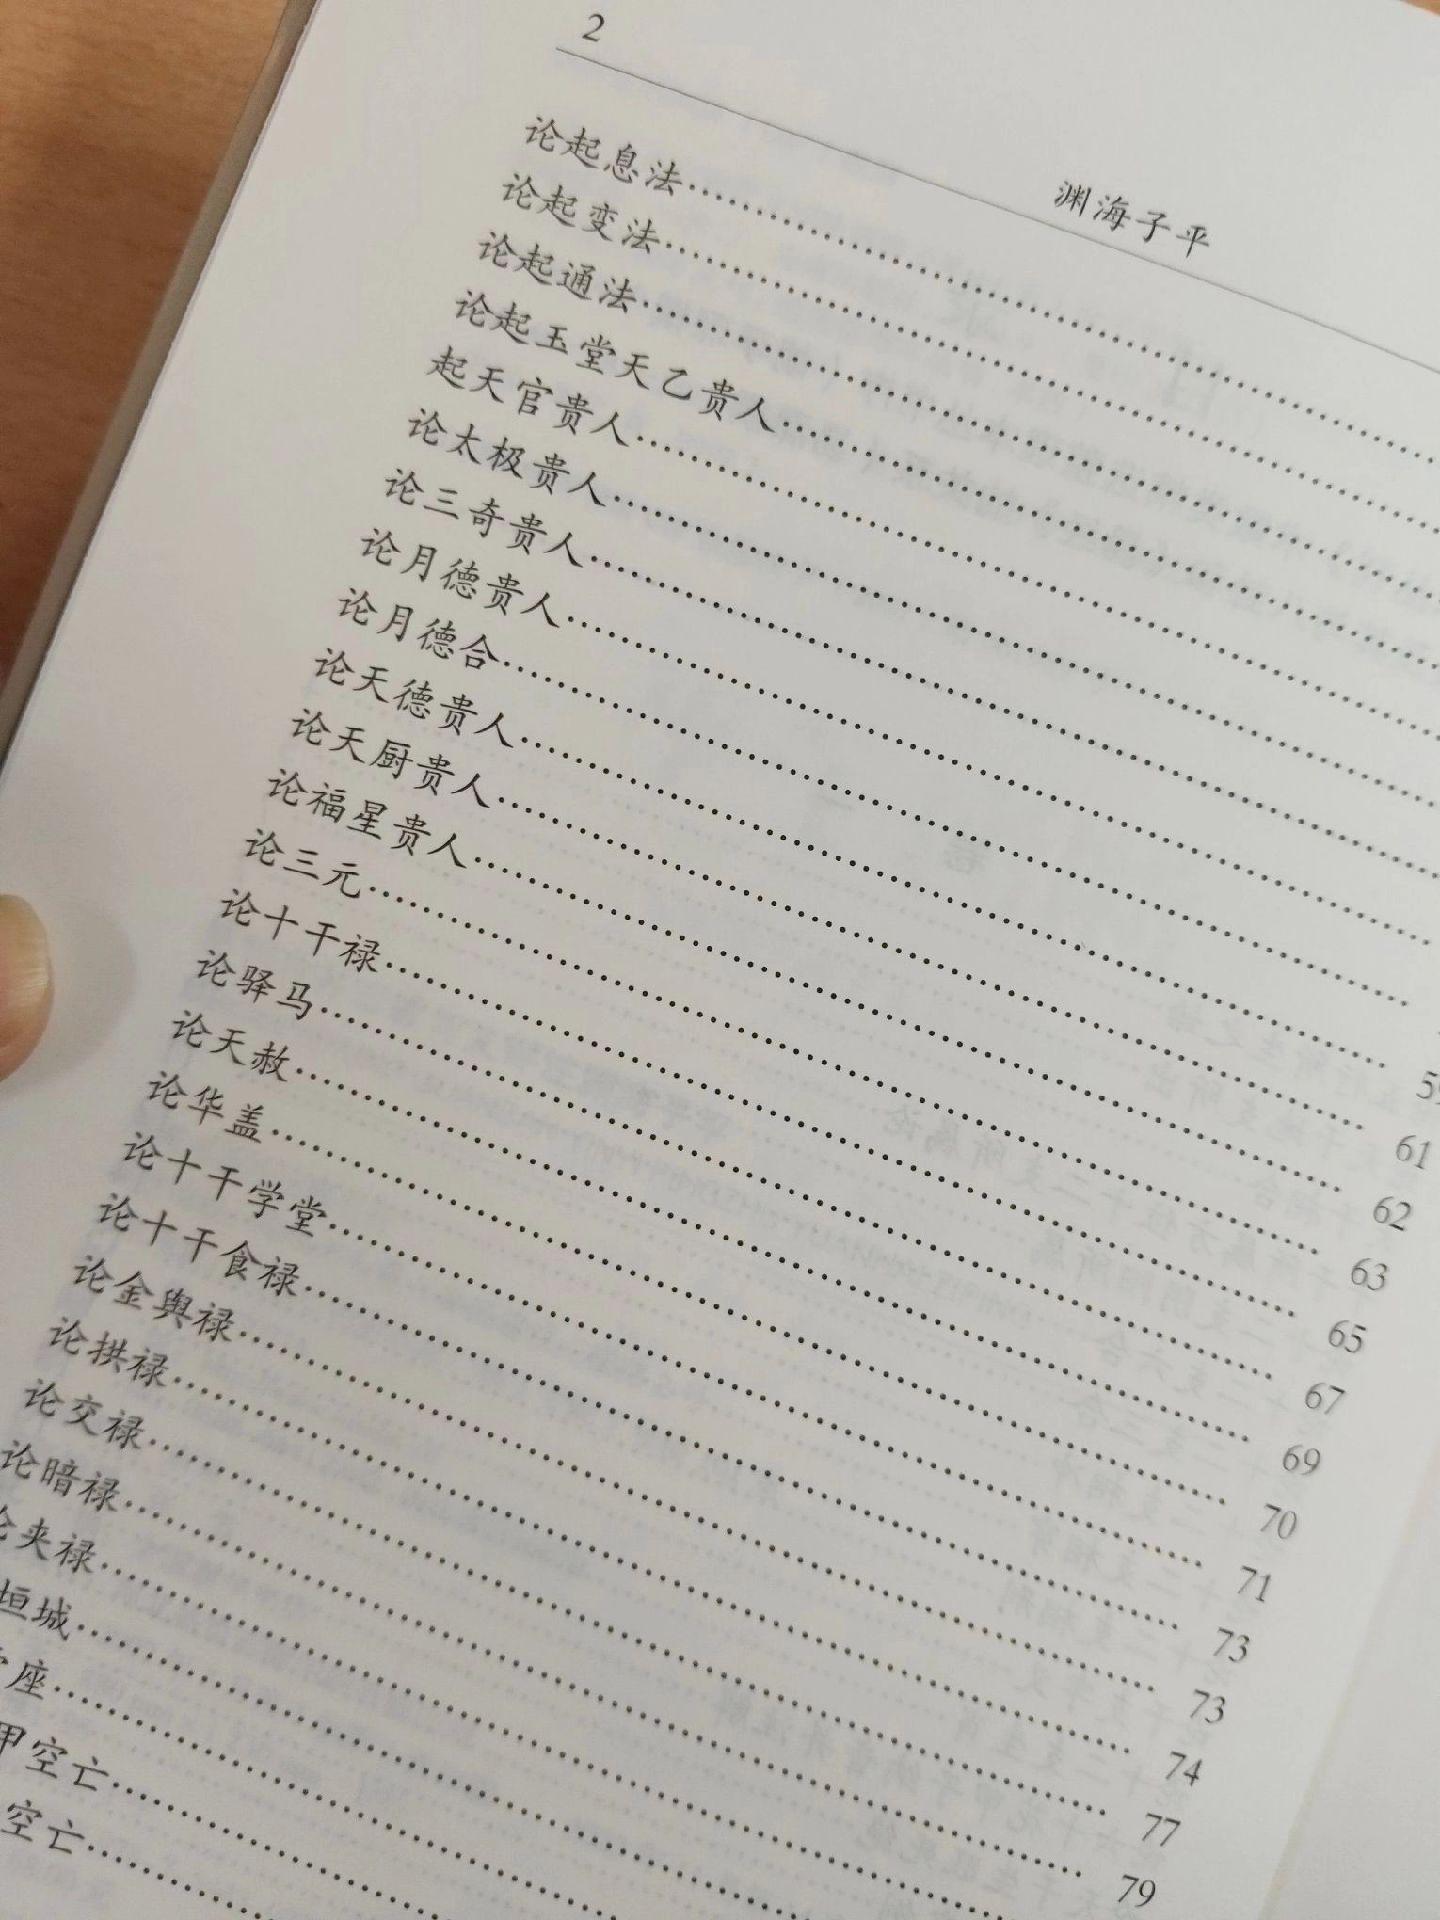 2
渊海子平
论起息法
论起变法
论起通法
论起玉堂天乙贵人
起天官贵人
论太极贵人
论三奇贵人
论月德贵人
论月德合
论天德贵人……59
论天厨贵人……61
论福星贵人……62
论三元……63
论十干禄……65
论驿马……67
论天赦……69
论华盖……70
论十干学堂……71
论十干食禄……73
论金舆禄……73
论拱禄……74
论交禄……77
论暗禄……79
论夹禄
垣城
座
甲空亡
空亡